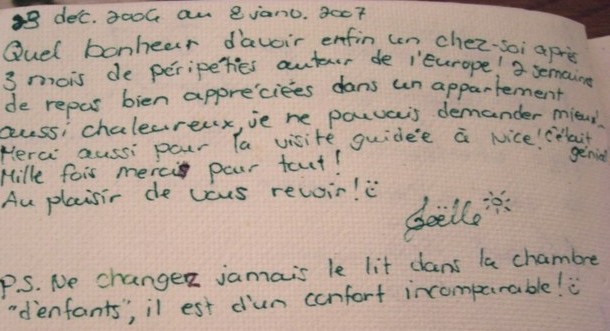 23 déc. 2006 au 8 janv. 2007
Quel bonheur d'avoir enfin un chez-soi après
3 mois de péripéties autour de l'Europe! 2 semaines
de repos bien appréciées dans un appartement
aussi chaleureux, je ne pouvais demander mieux!
Merci aussi pour la visite guidée à Nice! C'était génial
Mille fois mercis pour tout!
Au plaisir de vous revoir!
Gaëlle
P.S. Ne changez jamais le lit dans la chambre
"d'enfants", il est d'un confort incomparable!